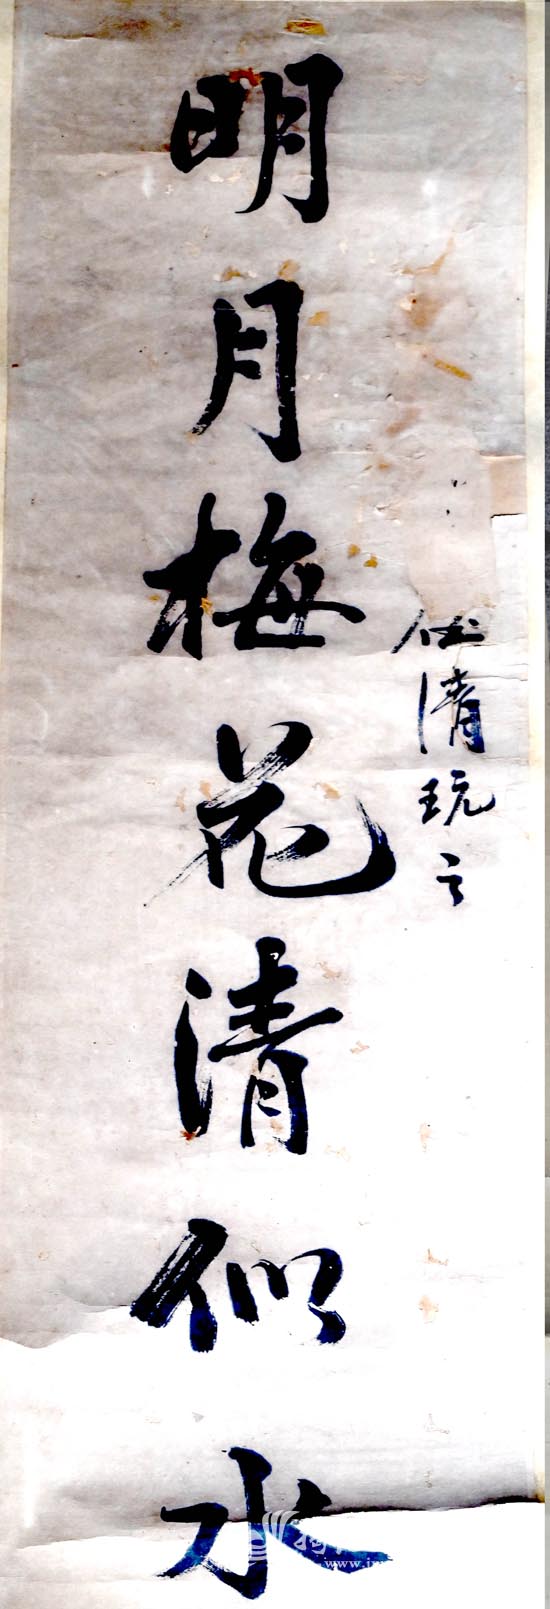 明月梅花清似水
清玩之
www.j